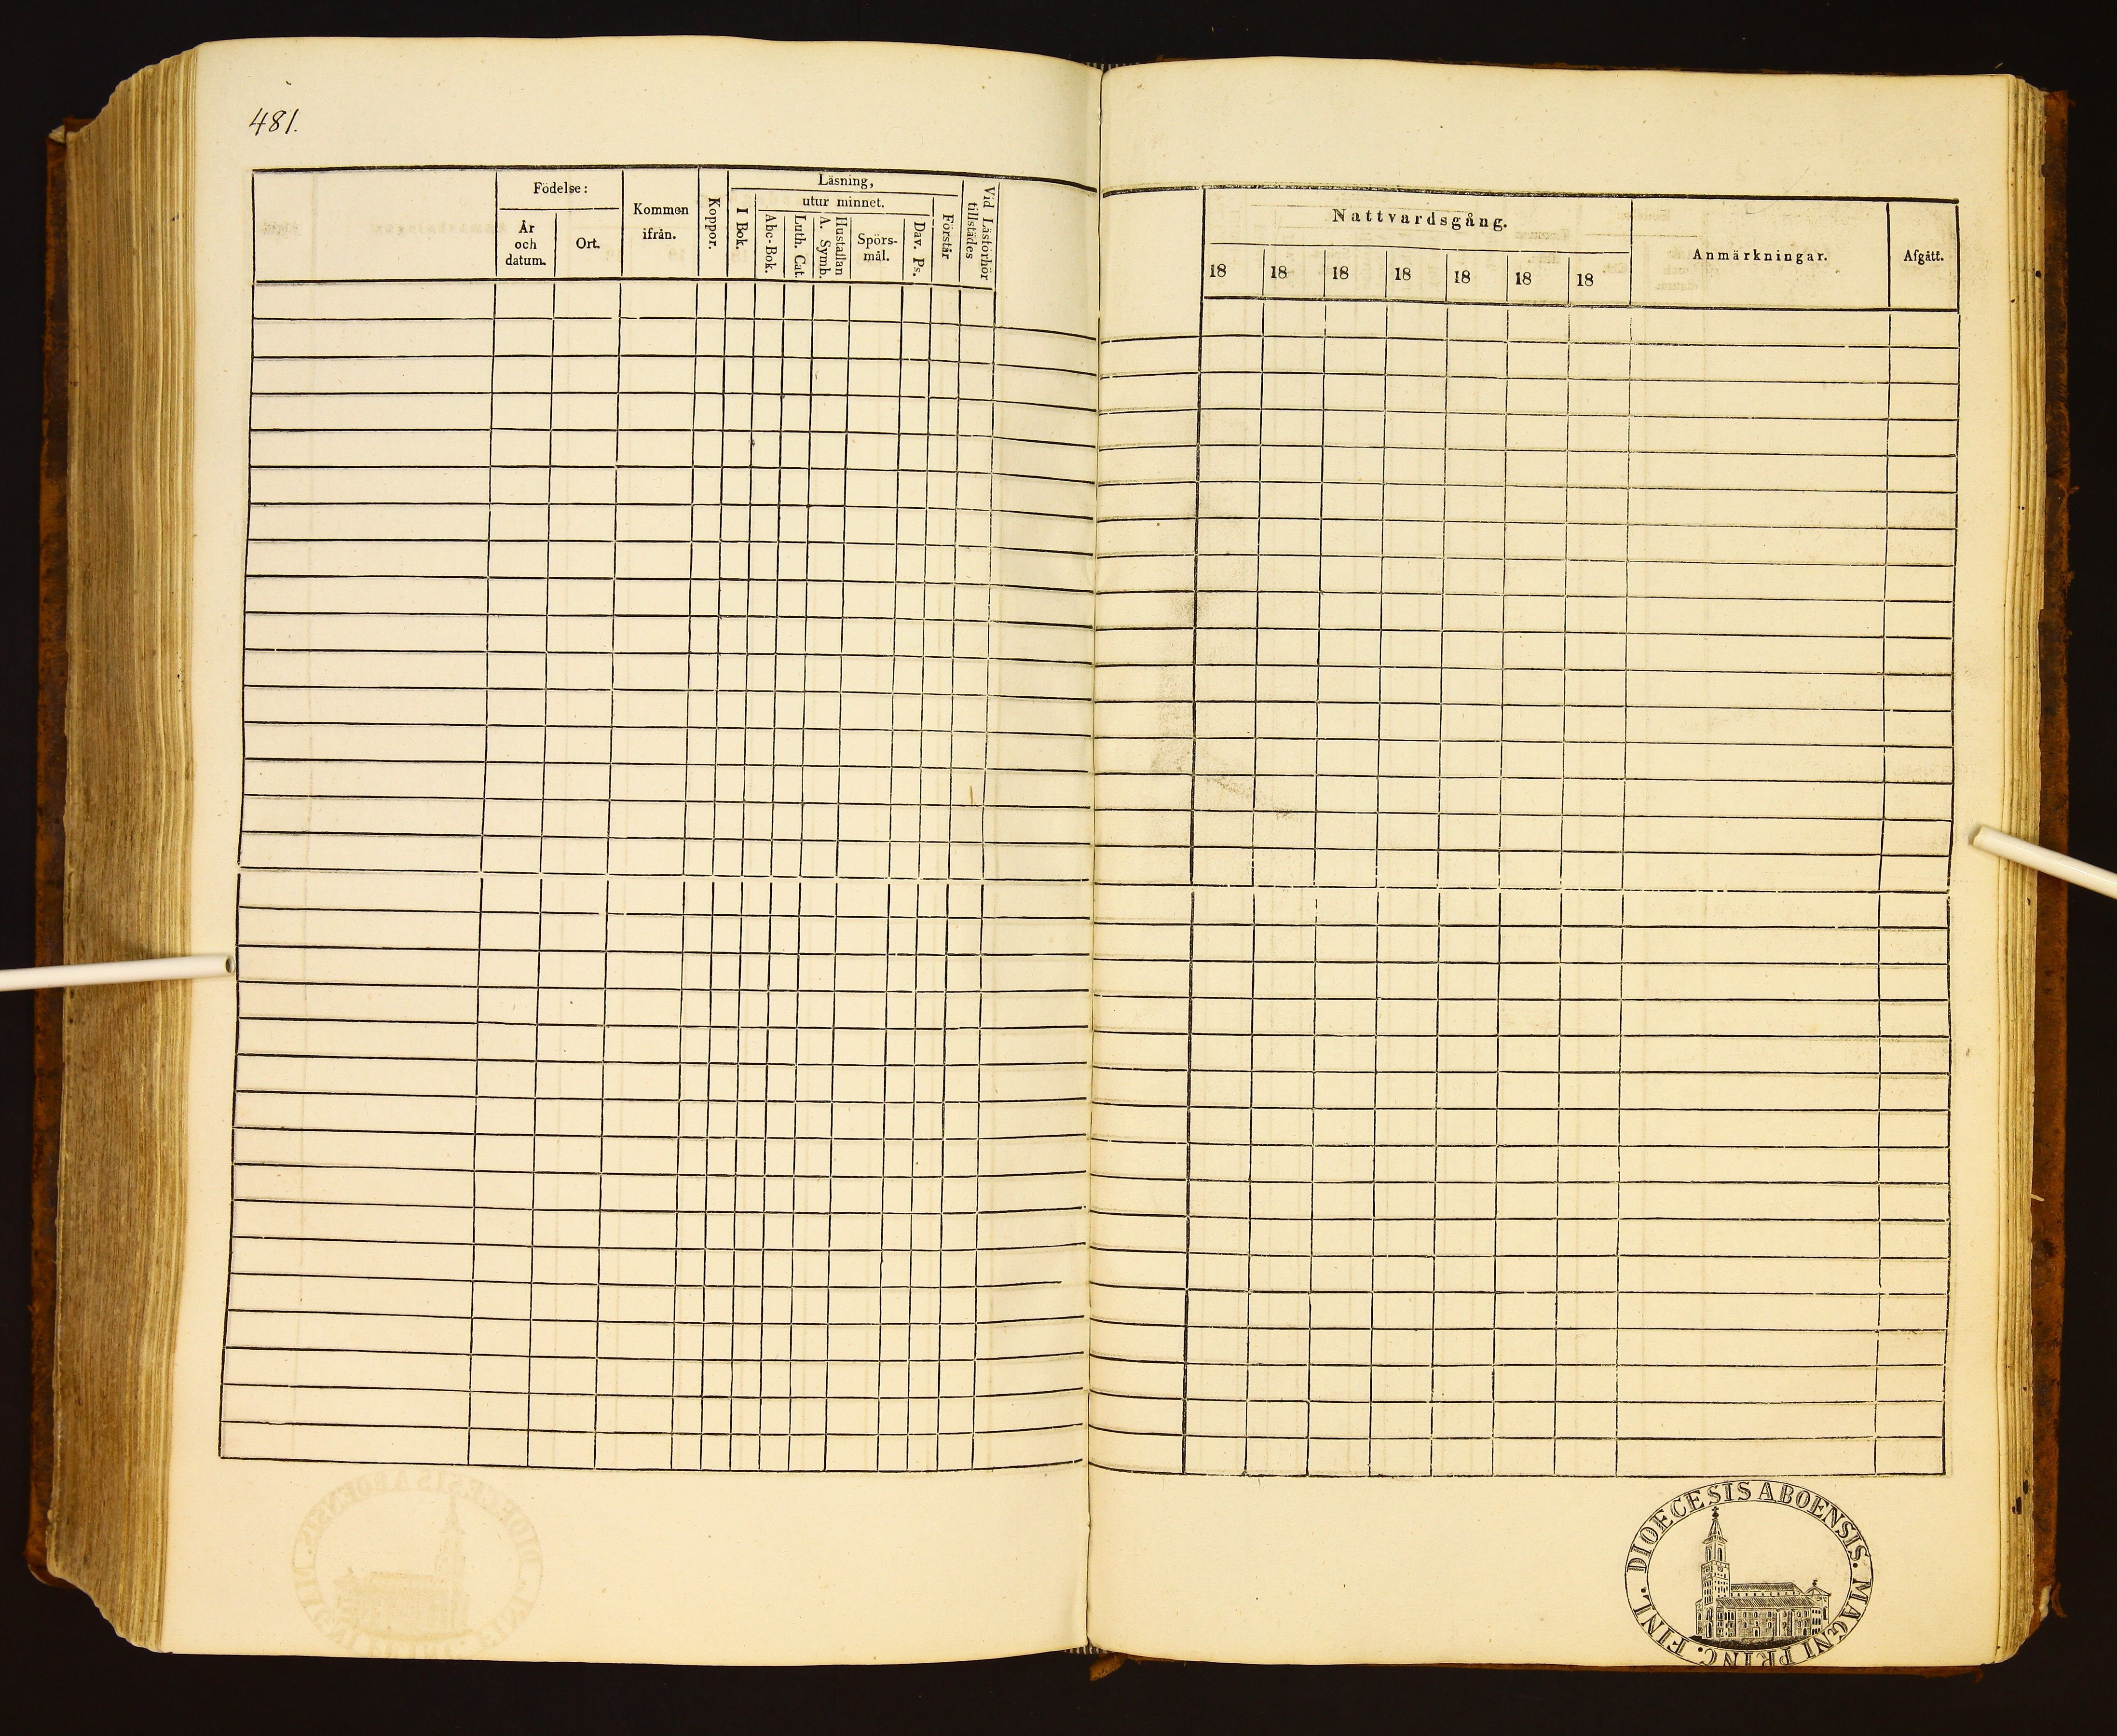 481.
Födelse:
År och datum.
Ort.
Kommen ifrån.
Koppor.
Läsning,
I Bok.
utur minnet.
Abc-Bok.
Luth. Cat.
A. Symb.
Hustaflan
Spörs-
mål.
Dav. Ps.
Förstår
Vid Läsförhör
tillstädes
Nattvardsgång.
18 18 18 18 18 18 18
Anmärkningar.
Afgått.
DIOECESIS ABOENSIS. MAGNI PRINC. FINL.